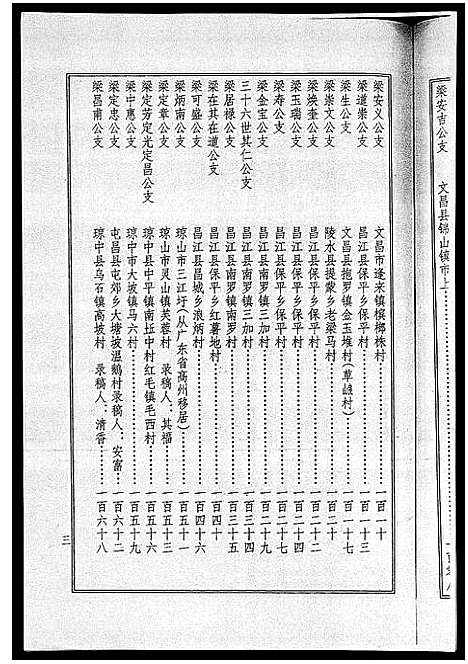 梁安吉公支 文昌县锦山镇市上
梁安义公支 文昌市蓬来镇槟榔株村 一百一十
梁道崇公支 昌江县保平乡保平村 一百一十三
梁生公支 文昌县抱罗镇金玉堆村(草嶷村) 一百一十七
梁崇文公支 陵水县提蒙乡老梁马村 一百二十
梁焕奎公支 昌江县保平乡保平村 一百二十二
梁玉瑞公支 昌江县保平乡保平村 一百二十四
梁寿公支 昌江县保平乡保平村 一百二十七
梁金宝公支 昌江县南罗镇三加村 一百二十九
三十六世其仁公支 昌江县南罗镇三加村 一百三十四
梁居禄公支 昌江县南罗镇南罗村 一百三十五
梁在其在道公支 昌江县保平乡红薯地村 一百四十
梁可盛公支 昌江县昌城乡浪炳村 一百四十六
梁炳南公支 琼山市三江圩(从广东省高州移居) 一百五十一
梁定章公支 琼山县灵山镇芙蓉村 录稿人:其福 一百五十三
梁定芳定光定昌公支 琼中县中平镇南坵中村红毛镇毛西村 一百五十六
梁中惠公支 琼中市大坡镇马六村 一百五十九
梁定忠公支 屯昌县屯郊乡大塘坡温鹅村录稿人:安富 一百六十二
梁昌甫公支 琼中县乌石镇高坡村 录稿人:清香 一百六十八
三